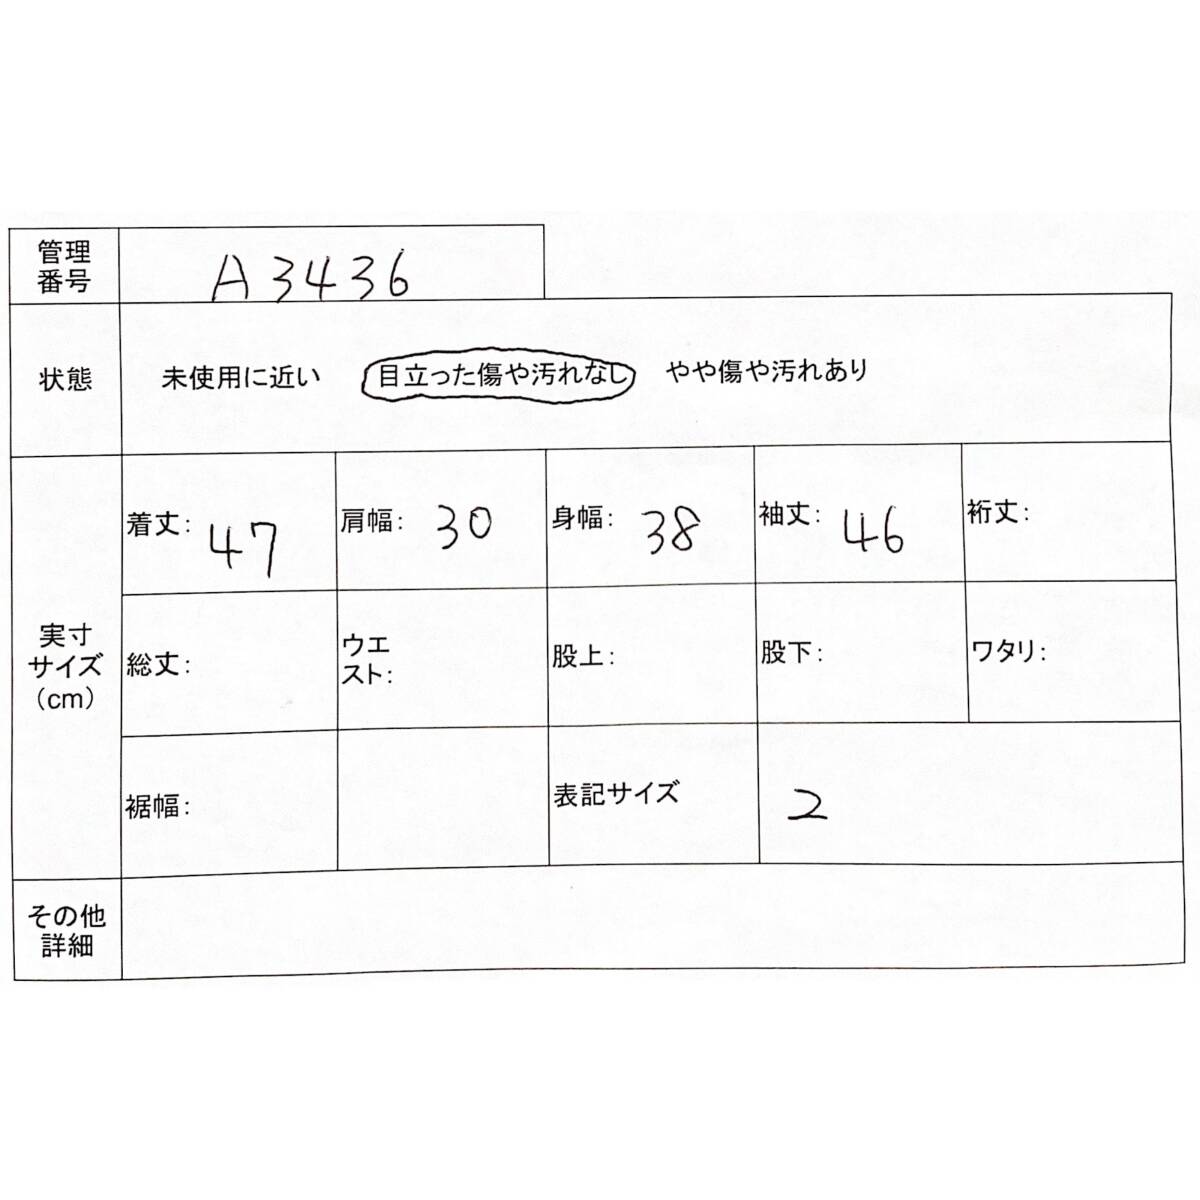 管理
番号
A3436
状態
未使用に近い 目立った傷や汚れなし やや傷や汚れあり
実寸
サイズ
(cm)
着丈: 47
肩幅: 30
身幅: 38
袖丈: 46
裄丈:
総丈:
ウエ
スト:
股上:
股下:
ワタリ:
裾幅:
表記サイズ
2
その他
詳細